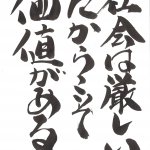 社会は厳しい
だからこそ
価値がある